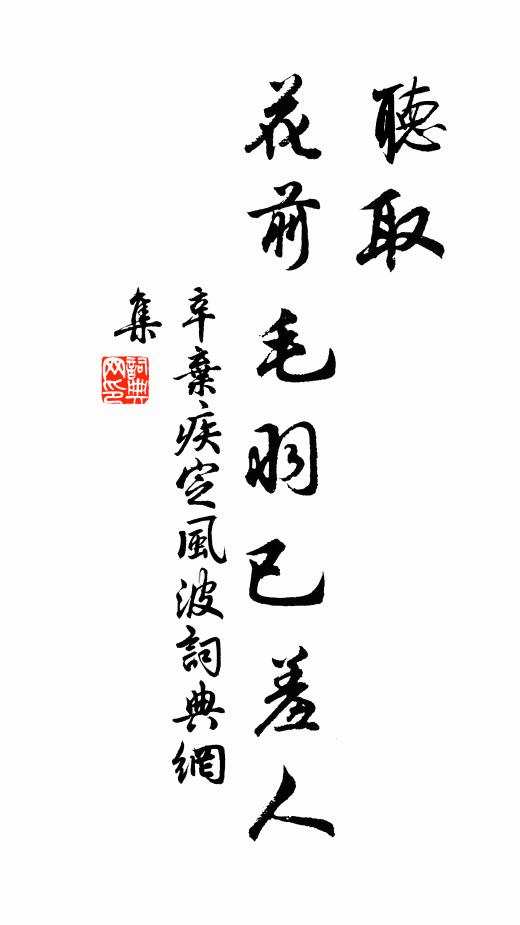 聽取
花前毛羽已羞人
辛棄疾定風波詞典網
集
詞典
网印